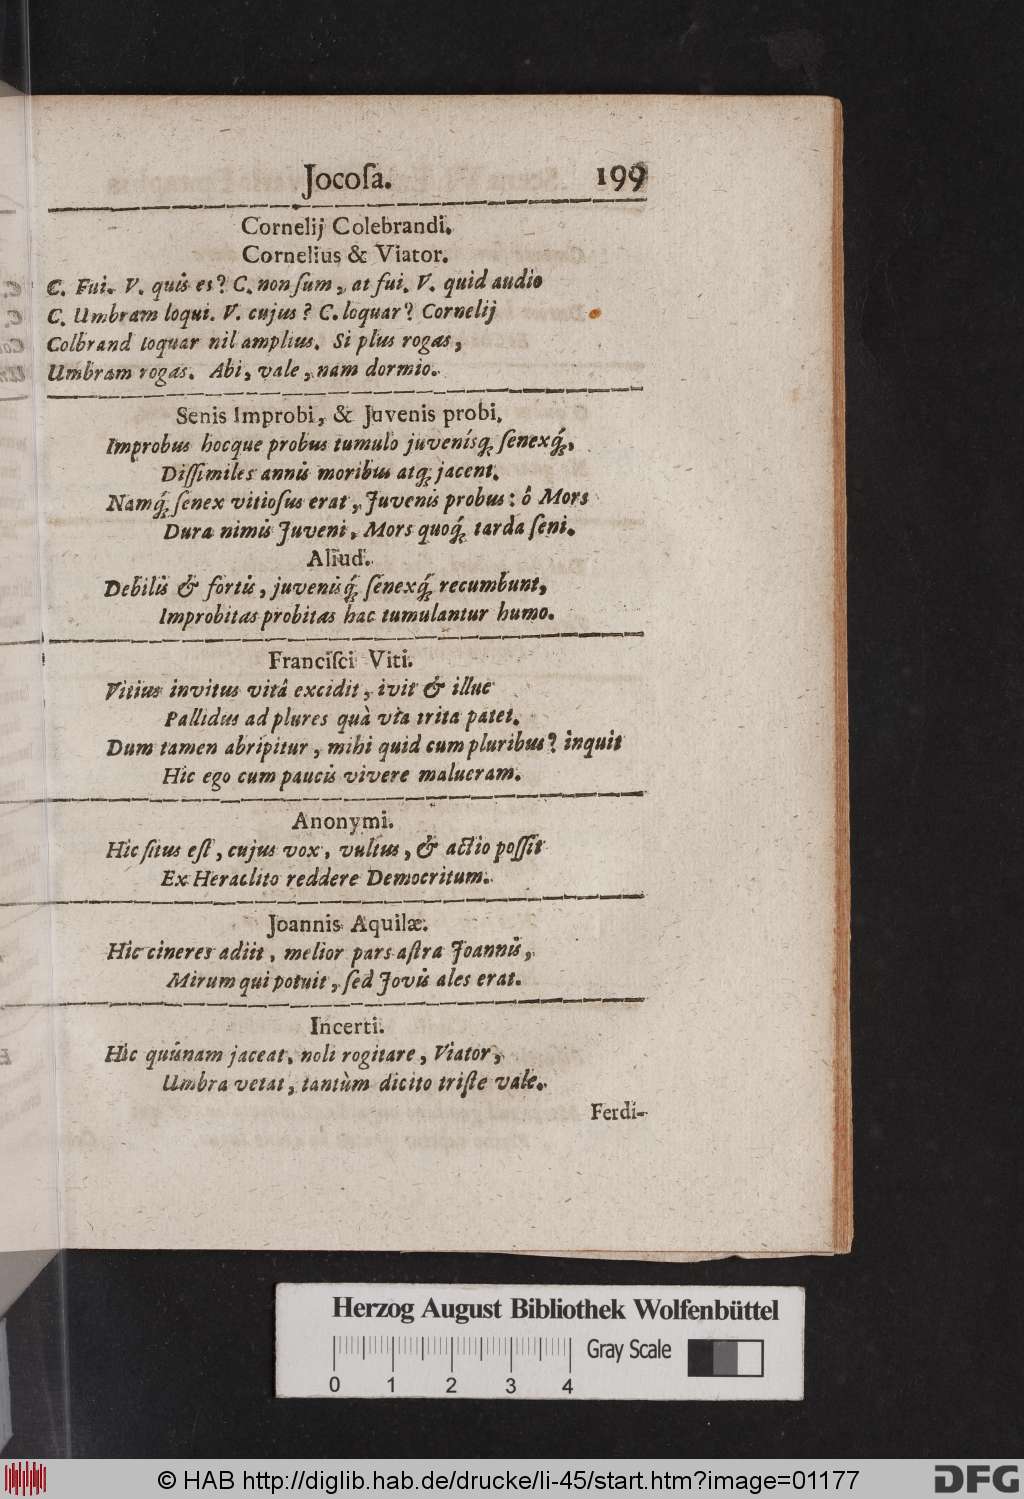 Jocoſa. 199
Cornelij Colebrandi.
Cornelius & Viator.
C. Fui. V. quis es? C. non ſum, at fui. V. quid audio
C. Umbram loqui. V. cujus? C. loquar? Cornelij
Colbrand loquar nil amplius. Si plus rogas,
Umbram rogas. Abi, vale, nam dormio.
Senis Improbi, & Juvenis probi.
Improbus hocque probus tumulo juvenísq́; ſenexq́;,
Diſſimiles annis moribus atq; jacent.
Namq́; ſenex vitioſus erat, Juvenis probus: ô Mors
Dura nimis Juveni, Mors quoq́; tarda ſeni.
Aliud.
Debilis & fortis, juvenisq́; ſenexq́; recumbunt,
Improbitas probitas hac tumulantur humo.
Franciſci Viti.
Vitius invitus vitâ excidit, ivit & illuc
Pallidus ad plures quà via trita patet.
Dum tamen abripitur, mihi quid cum pluribus? inquit
Hic ego cum paucis vivere malueram.
Anonymi.
Hic ſitus eſt, cujus vox, vultus, & actio poſſit
Ex Heraclito reddere Democritum.
Joannis Aquilæ.
Hic cineres adiit, melior pars aſtra Joannis,
Mirum qui potuit, ſed Jovis ales erat.
Incerti.
Hic quisnam jaceat, noli rogitare, Viator,
Umbra vetat, tantùm dicito triſte vale.
Ferdi-
Herzog August Bibliothek Wolfenbüttel
Gray Scale
0 1 2 3 4
© HAB http://diglib.hab.de/drucke/li-45/start.htm?image=01177
DFG